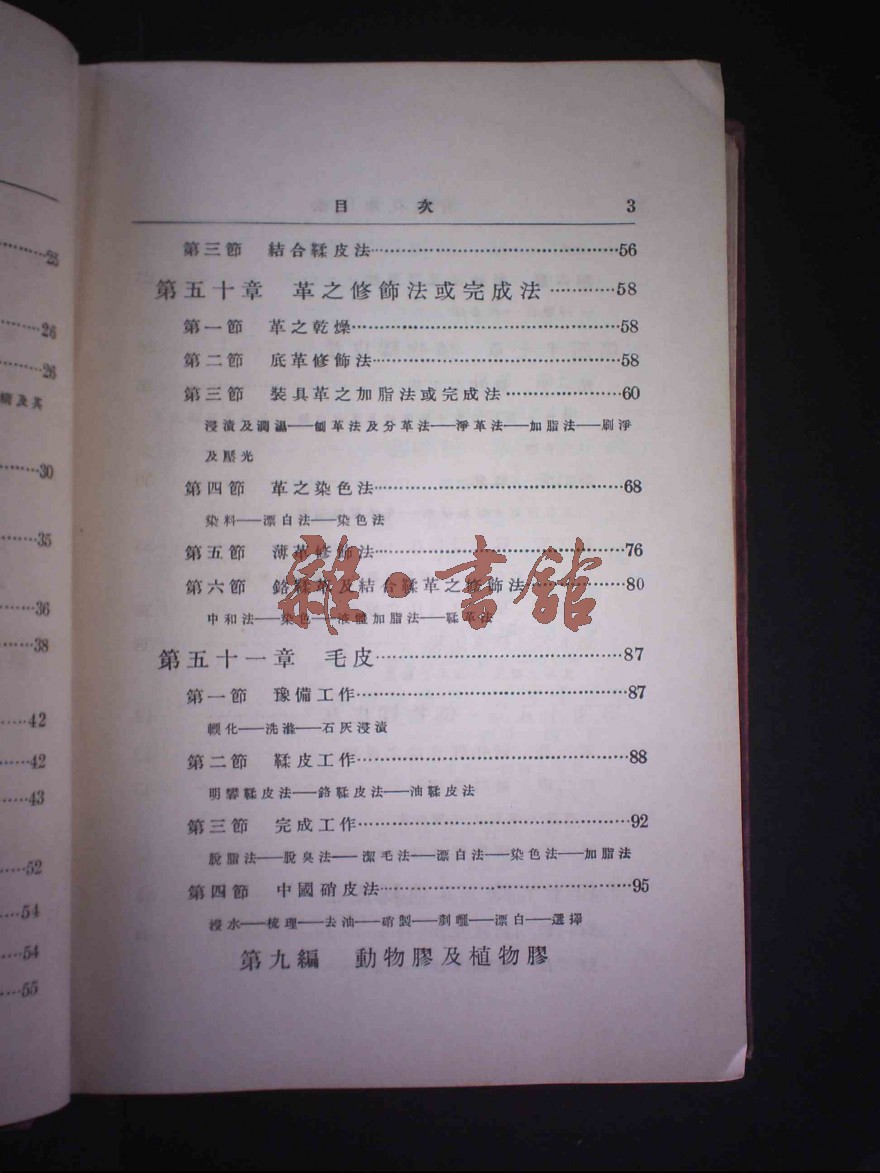 25
26
26
30
35
36
38
42
42
43
52
54
54
55
目次 3
第三節 結合鞣皮法……56
第五十章 革之修飾法或完成法……58
第一節 革之乾燥……58
第二節 底革修飾法……58
第三節 裝具革之加脂法或完成法……60
浸漬及潤濕——刨革法及分革法——淨革法——加脂法——刷淨
及壓光
第四節 革之染色法……68
染料——漂白法——染色法
第五節 薄革修飾法……76
第六節 鉻鞣革及結合鞣革之修飾法……80
中和法——染色——液體加脂法——鞣革法
第五十一章 毛皮……87
第一節 豫備工作……87
輭化——洗滌——石灰浸漬
第二節 鞣皮工作……88
明礬鞣皮法——鉻鞣皮法——油鞣皮法
第三節 完成工作……92
脫脂法——脫臭法——潔毛法——漂白法——染色法——加脂法
第四節 中國硝皮法……95
浸水——梳理——去油——硝製——剷曬——漂白——選擇
第九編 動物膠及植物膠
雜·書館